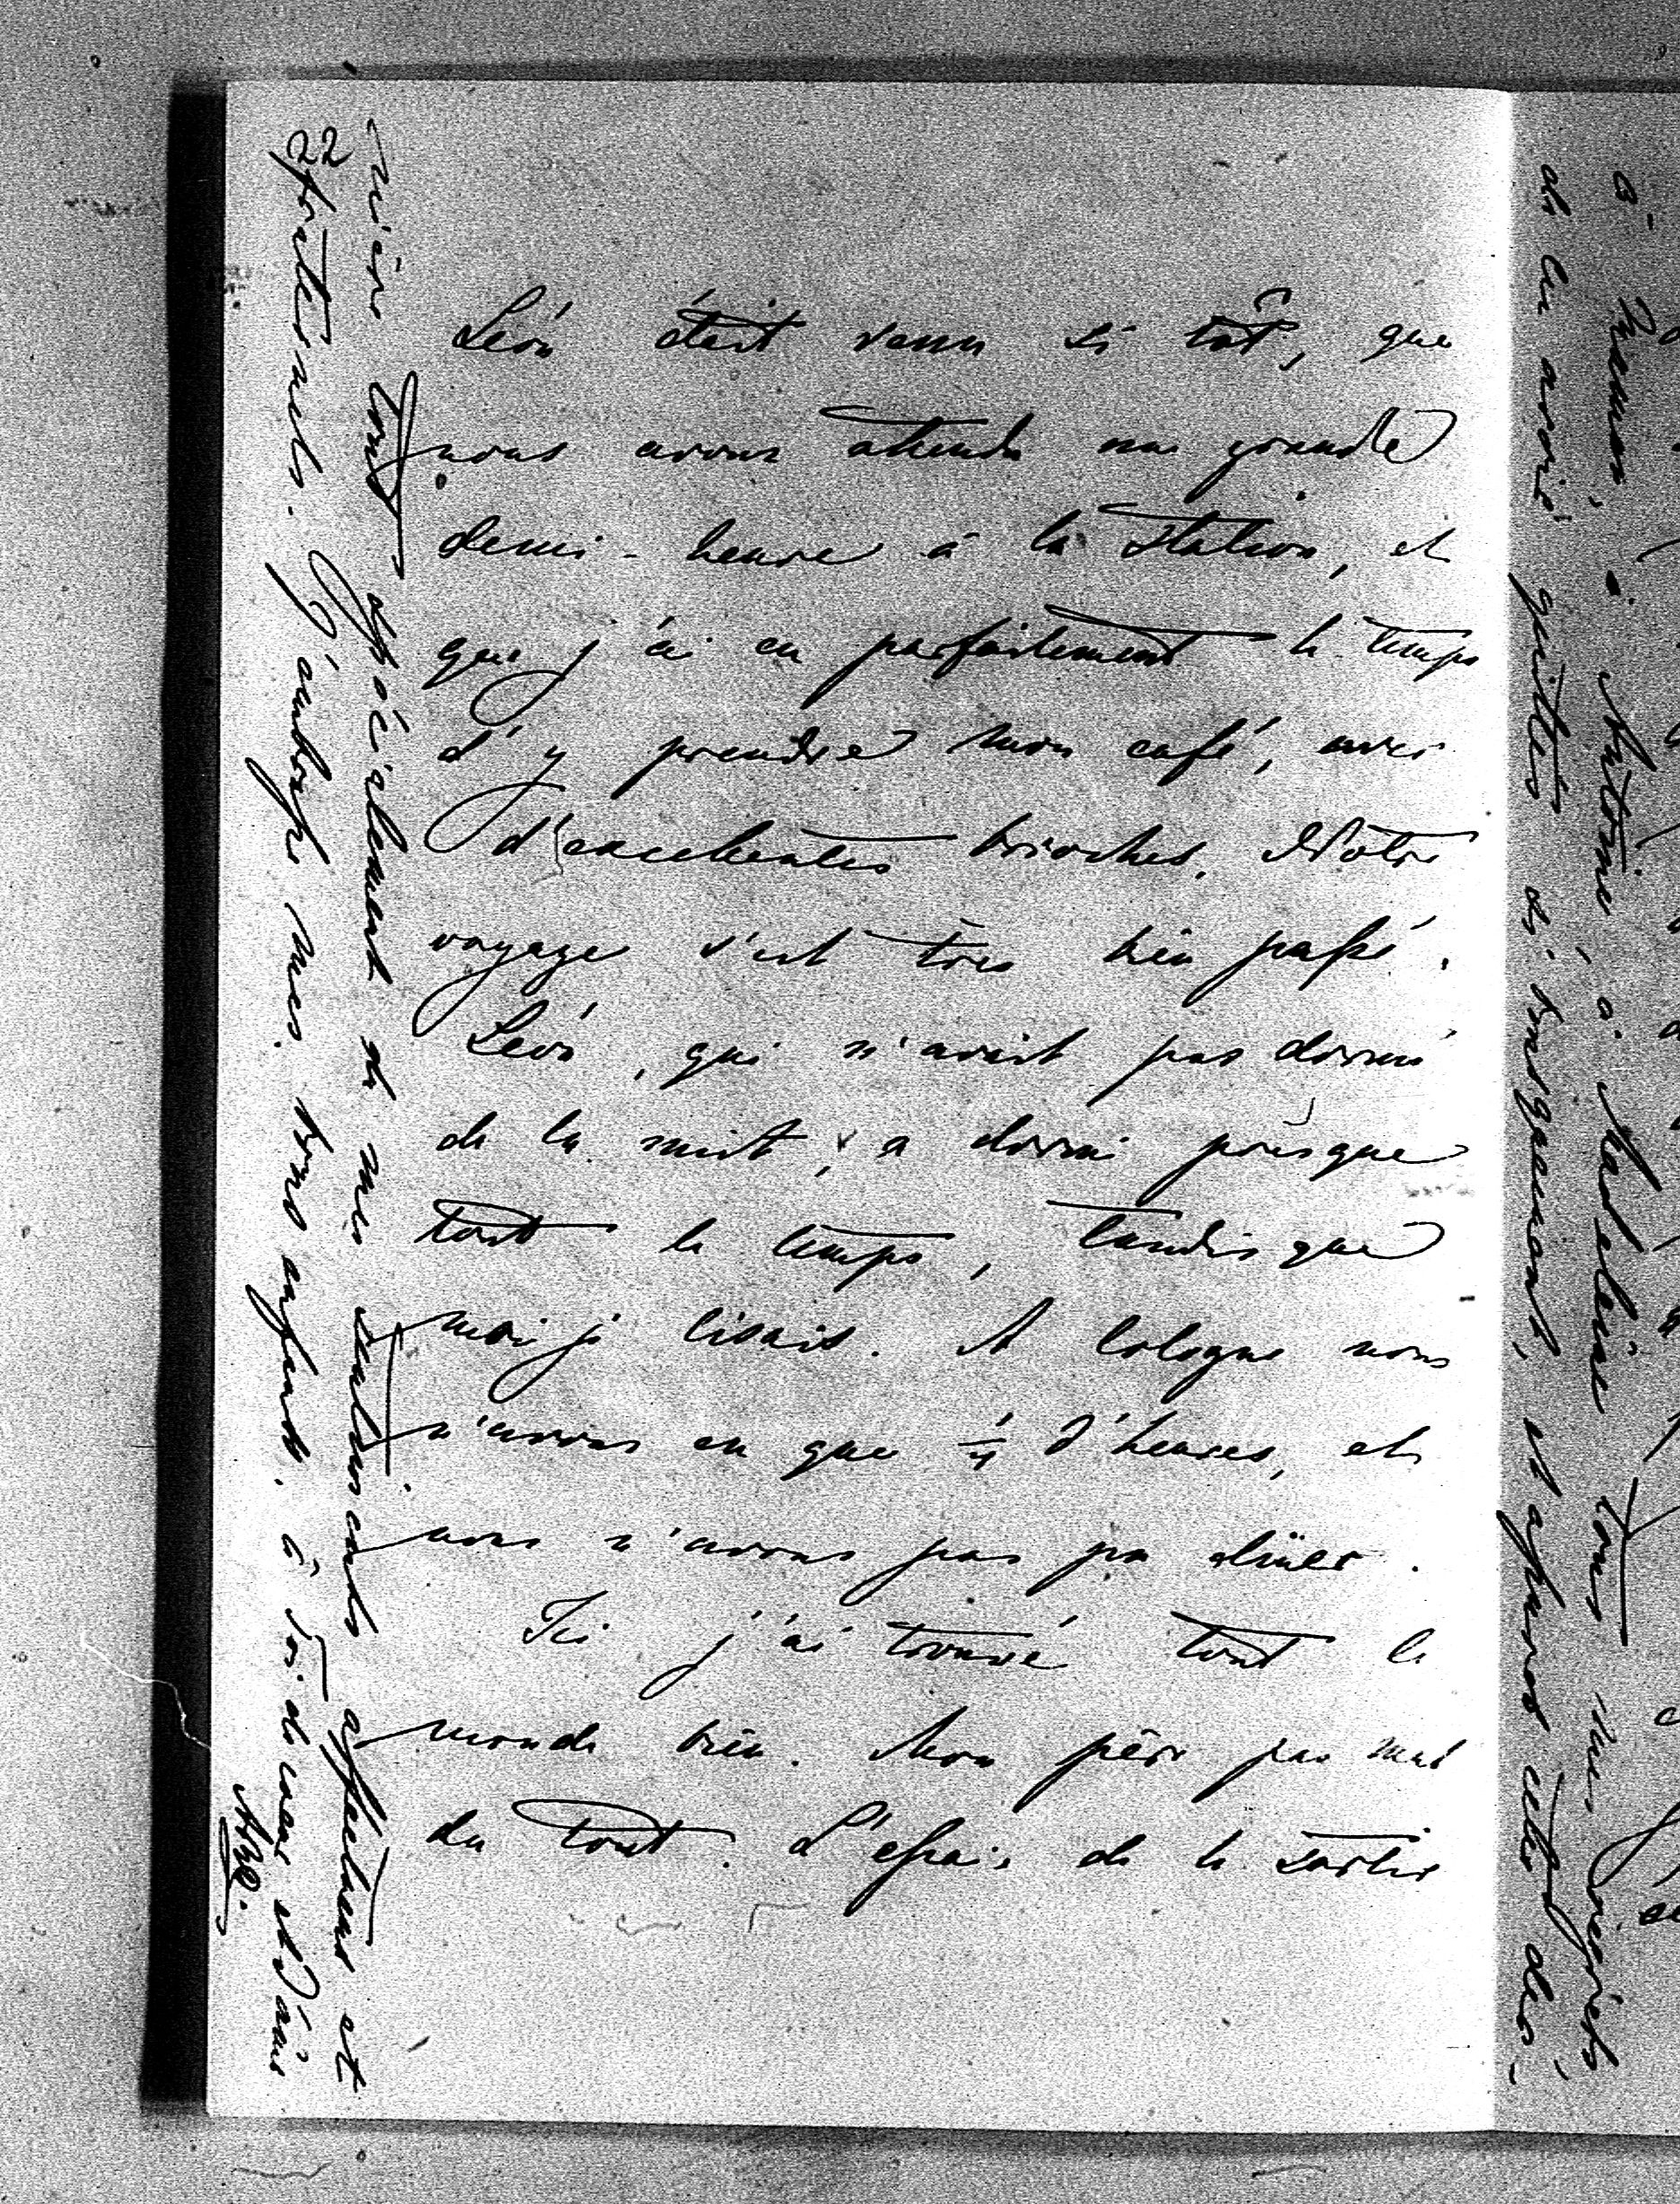 22
Léon était venu si tôt, que
nous avons attendu une grande
demi-heure à la station, et
que j'ai eu parfaitement le temps
d'y prendre mon café, avec
d'excellentes brioches. Nôtre
voyage s'est très bien passé.
Léon, qui n'avait pas dormi
de la nuit, a dormi presque
tout le temps, tandis que
moi je lisais. A Cologne nous
n'avons eu que ¼ d'heures, et
nous n'avons pas pu dîner.
Ici j'ai trouvé tout le
monde bien. Mon père pas mal
du tout. L'essai de le sortir
tous spécialement de mes sentiments affectueux et
fraternels. J'embrasse mes bons enfants. à toi de cœur et d'âme
à Maman, à Antoine, à Madeleine tous mes regrets
de les avoir quittés si brusquement, et